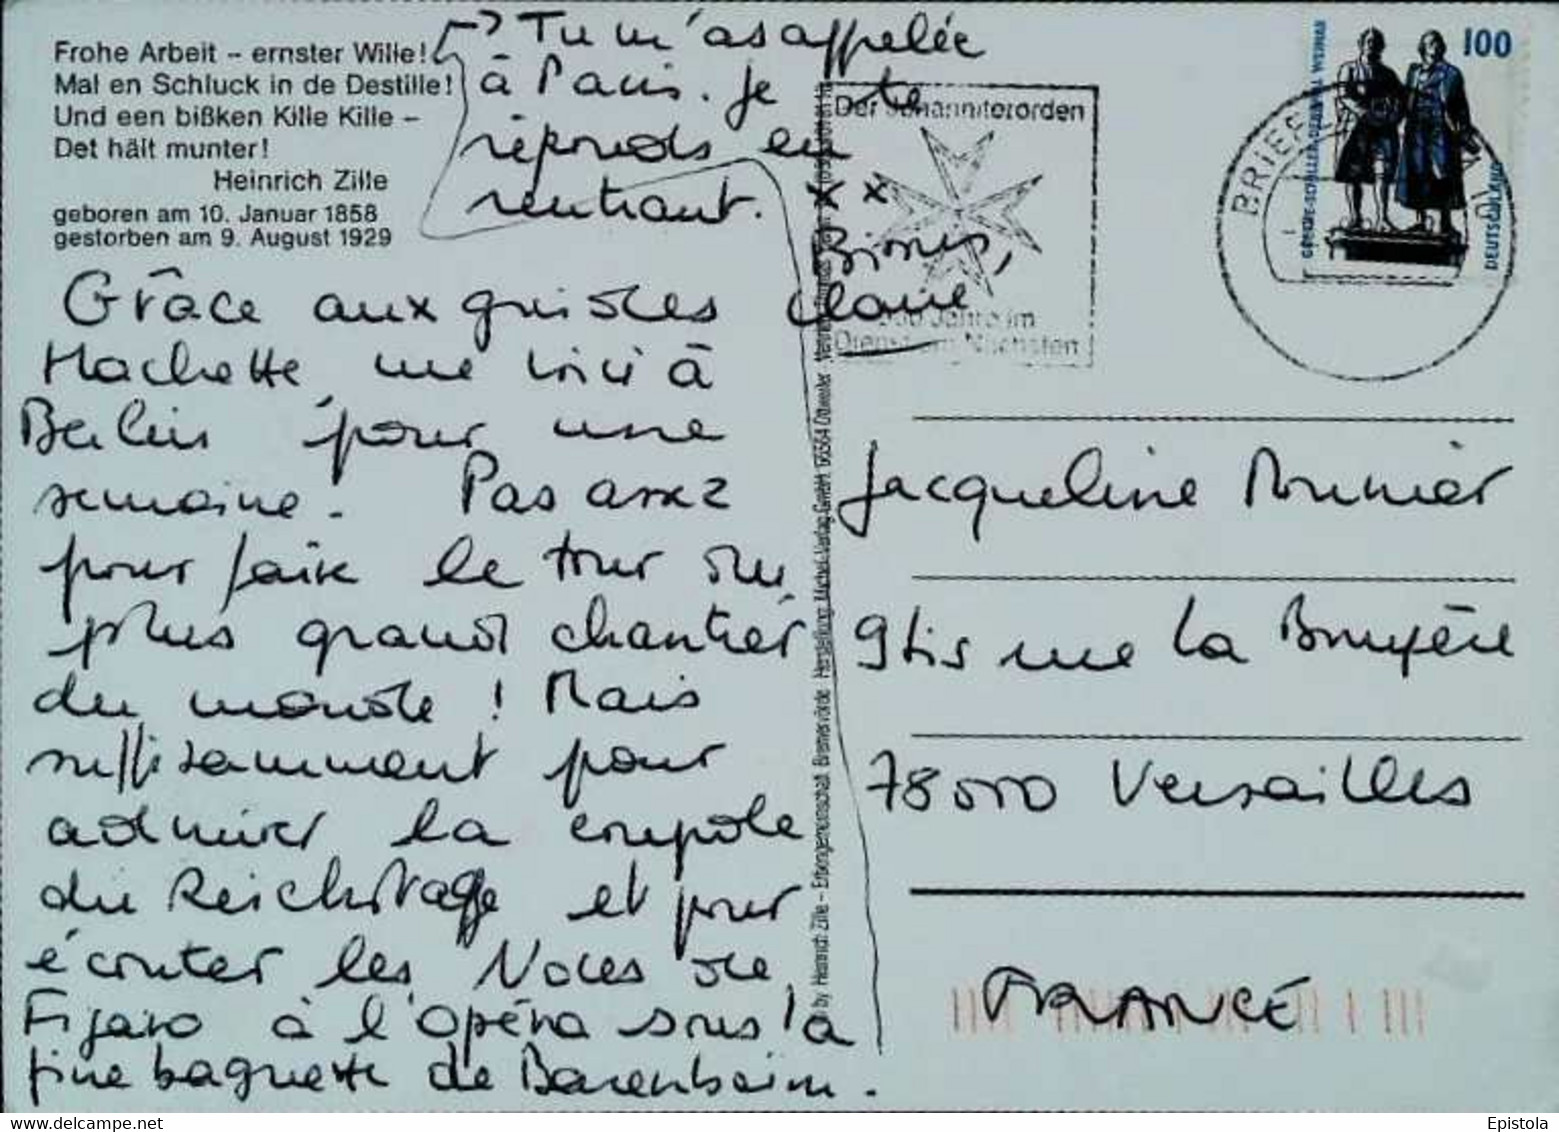 Frohe Arbeit – ernster Wille!
Mal en Schluck in de Destille!
Und een bißken Kille Kille –
Det hält munter!
Heinrich Zille
geboren am 10. Januar 1858
gestorben am 9. August 1929
Tu m'as appelée
à Paris. Je te
réponds en
rentrant. xx
Bises,
Claire
Grâce aux guides
Hachette, me voici à
Berlin pour une
semaine. Pas assez
pour faire le tour du
plus grand chantier
du monde ! Mais
suffisamment pour
admirer la coupole
du Reichstag et pour
écouter les Noces de
Figaro à l'opéra sous la
fine baguette de Barenboim.
Der Johanniterorden
900 Jahre im
Dienst am Nächsten
BRIEFZENTRUM 10
100
GOETHE-SCHILLER-DENKMAL WEIMAR
DEUTSCHLAND
by Heinrich Zille – Erbengemeinschaft Bremervörde Herstellung: Michel-Verlag GmbH, 66564 Ottweiler
Jacqueline
9 bis rue La Bruyère
78000 Versailles
FRANCE
Epistola